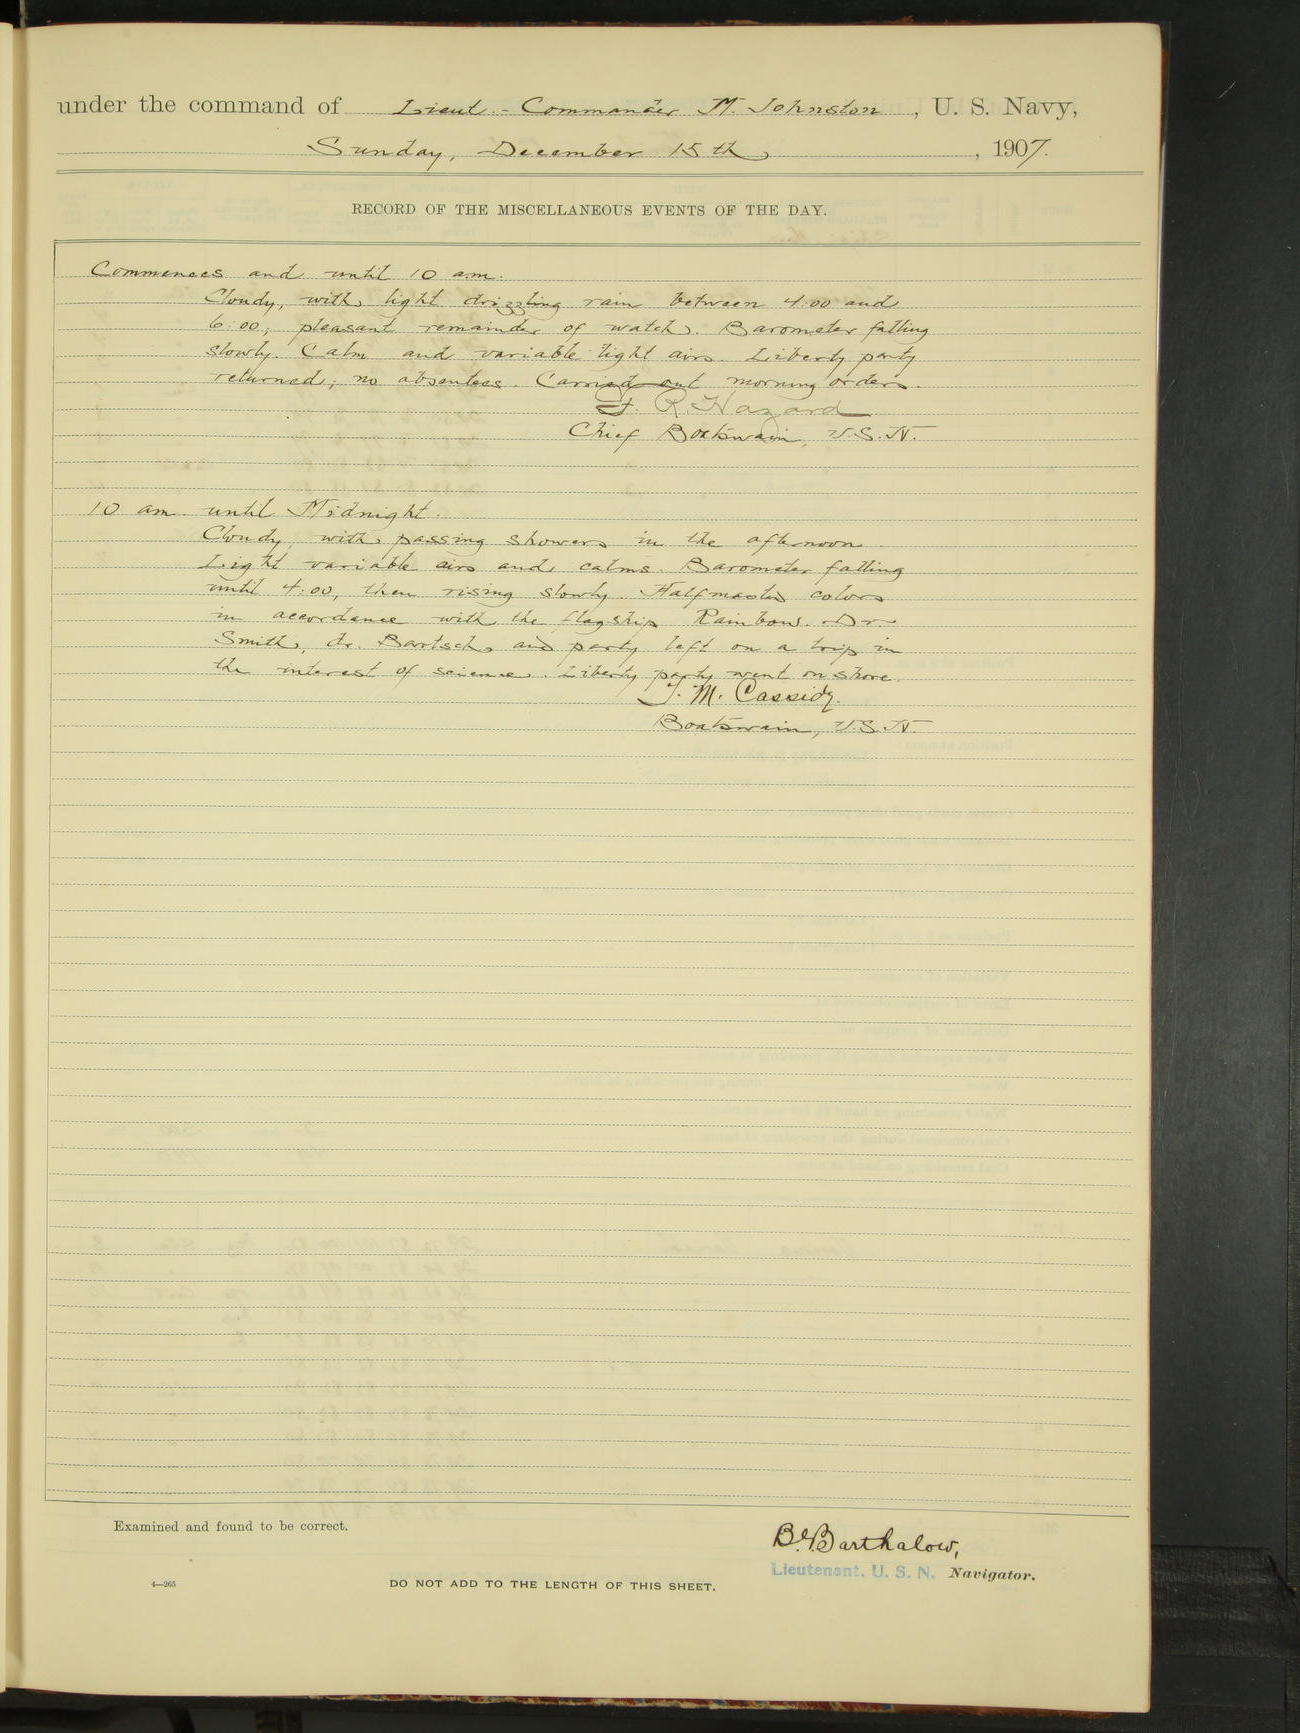 under the command of Lieut.-Commander M. Johnston, U. S. Navy,
Sunday, December 15th, 1907.
RECORD OF THE MISCELLANEOUS EVENTS OF THE DAY.
Commences and until 10 am.
Cloudy, with light drizzling rain between 4:00 and
6:00; pleasant remainder of watch. Barometer falling
slowly. Calm and variable light airs. Liberty party
returned; no absentees. Carried out morning orders.
F. R. Hazard
Chief Boatswain, U.S.N.
10 am until Midnight.
Cloudy with passing showers in the afternoon.
Light variable airs and calms. Barometer falling
until 4:00, then rising slowly. Halfmasted colors
in accordance with the flagship Rainbow. Dr.
Smith, dr. Bartsch and party left on a trip in
the interest of science. Liberty party went on shore.
J. M. Cassidy.
Boatswain, U.S.N.
Examined and found to be correct.
Barthalow,
Lieutenant, U. S. N. Navigator.
4—265
DO NOT ADD TO THE LENGTH OF THIS SHEET.